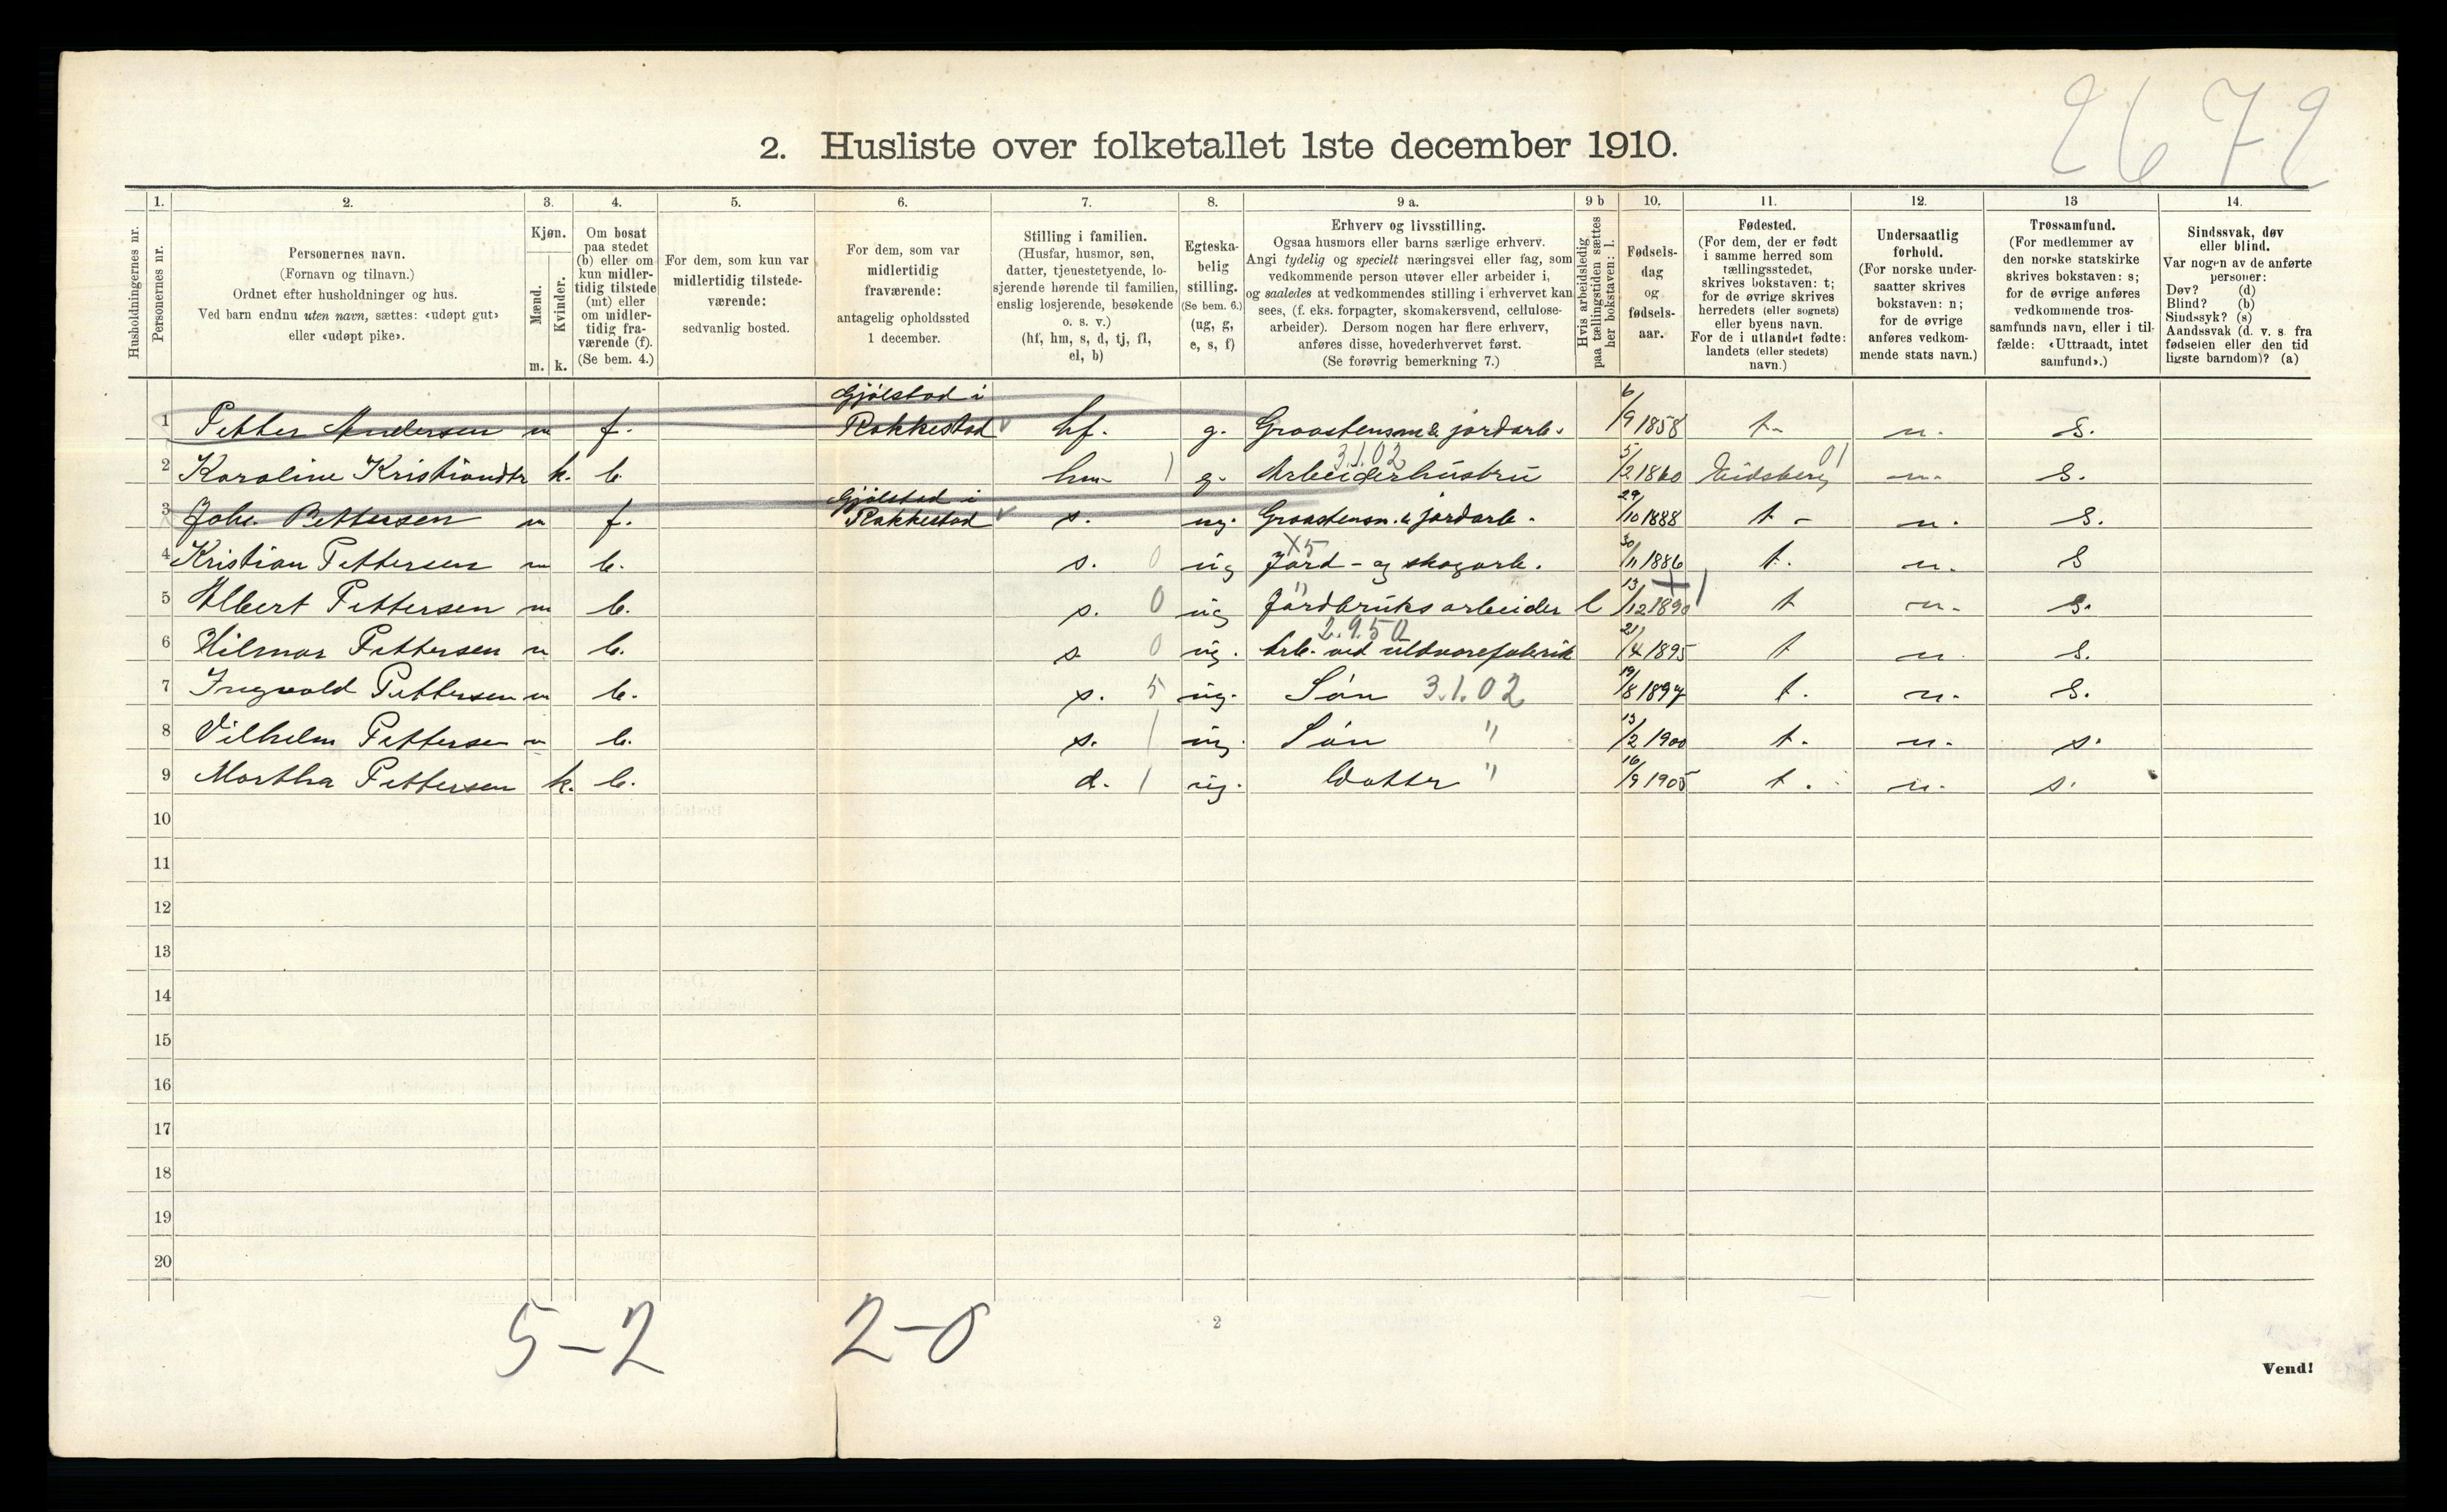 2672
2. Husliste over folketallet 1ste december 1910.
Husholdningernes nr.
1.
Personernes nr.
2.
Personernes navn.
(Fornavn og tilnavn.)
Ordnet efter husholdninger og hus.
Ved barn endnu uten navn, sættes: «udøpt gut»
eller «udøpt pike».
3.
Kjøn.
Mænd.
Kvinder.
m. k.
4.
Om bosat
paa stedet
(b) eller om
kun midler-
tidig tilstede
(mt) eller
om midler-
tidig fra-
værende (f).
(Se bem. 4.)
5.
For dem, som kun var
midlertidig tilstede-
værende:
sedvanlig bosted.
6.
For dem, som var
midlertidig
fraværende:
antagelig opholdssted
1 december.
7.
Stilling i familien.
(Husfar, husmor, søn,
datter, tjenestetyende, lo-
sjerende hørende til familien,
enslig losjerende, besøkende
o. s. v.)
(hf, hm, s, d, tj, fl,
el, b)
8.
Egteska-
belig
stilling.
(Se bem. 6.)
(ug, g,
e, s, f)
9 a.
Erhverv og livsstilling.
Ogsaa husmors eller barns særlige erhverv.
Angi tydelig og specielt næringsvei eller fag, som
vedkommende person utøver eller arbeider i,
og saaledes at vedkommendes stilling i erhvervet kan
sees, (f. eks. forpagter, skomakersvend, cellulose-
arbeider). Dersom nogen har flere erhverv,
anføres disse, hovederhvervet først.
(Se forøvrig bemerkning 7.)
9 b
Hvis arbeidsledig
paa tællingstiden sættes
her bokstaven: l.
10.
Fødsels-
dag
og
fødsels-
aar.
11.
Fødested.
(For dem, der er født
i samme herred som
tællingsstedet,
skrives bokstaven: t;
for de øvrige skrives
herredets (eller sognets)
eller byens navn.
For de i utlandet fødte:
landets (eller stedets)
navn.)
12.
Undersaatlig
forhold.
(For norske under-
saatter skrives
bokstaven: n;
for de øvrige
anføres vedkom-
mende stats navn.)
13
Trossamfund.
(For medlemmer av
den norske statskirke
skrives bokstaven: s;
for de øvrige anføres
vedkommende tros-
samfunds navn, eller i til-
fælde: «Uttraadt, intet
samfund».)
14.
Sindssvak, døv
eller blind.
Var nogen av de anførte
personer:
Døv? (d)
Blind? (b)
Sindssyk? (s)
Aandssvak (d. v. s. fra
fødselen eller den tid
ligste barndom)? (a)
Gjölstad i
1 Petter Andersen m f. Rakkestad hf. g. Graastensm & jordarb. 6/9 1858 t- n. s.
3.1.02 01
2 Karoline Kristiansdtr k. b. hm- 1 g. Arbeiderhustru 5/2 1860 Eidsberg n. s.
Gjölstad i
3 Johs. Pettersen m f. Rakkestad s. ug. Graastensm. & jordarb. 29/10 1888 t - n. s.
X5
4 Kristian Pettersen m b. s. 0 ug Jord- og skogarb. 30/11 1886 t. n. s
"
5 Albert Pettersen m b. s. 0 ug Jordbruksarbeider l 13/12 1890 t n. s.
2.9.50
6 Hilmar Pettersen m b. s. 0 ug. Arb. ved uldvarefabrik 21/4 1895 t n s.
7 Ingvald Pettersen m b. s. 5 ug. Sön 3.1.02 19/8 1897 t. n. s.
8 Vilhelm Pettersen m b. s. 1 ug. Sön " 13/2 1900 t. n. s.
9 Martha Pettersen k. b. d. 1 ug. Datter " 16/9 1905 t. n. s.
10
11
12
13
14
15
16
17
18
19
20
5-2 2-0
2
Vend!